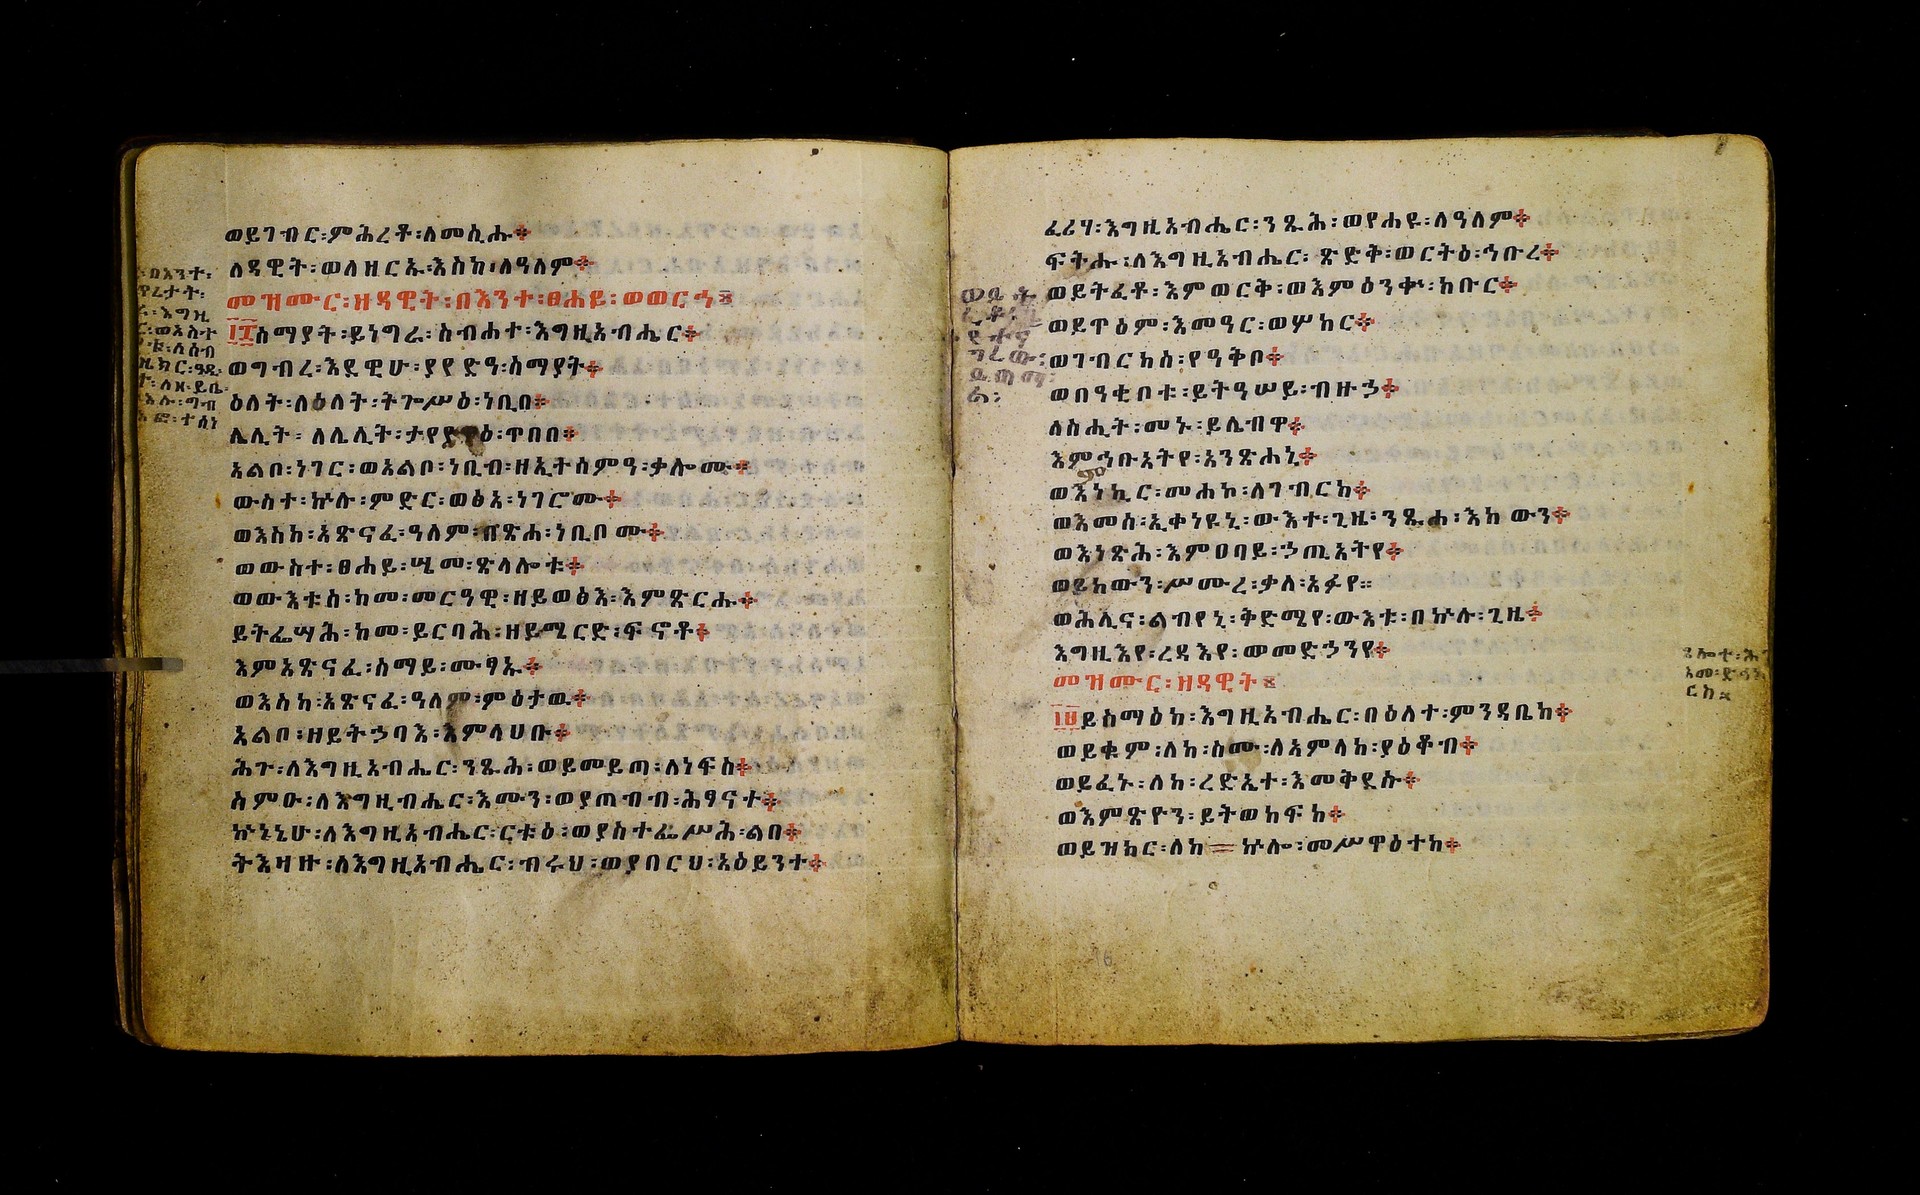 ወይገብር፡ምሕረቶ፡ለመሲሑ።
ለዳዊት፡ወለዘርኡ፡እስከ፡ለዓለም።
መዝሙር፡ዘዳዊት፡በእንተ፡ፀሐይ፡ወወርኅ፨
፲፰ስማያት፡ይነግራ፡ስብሐተ፡እግዚአብሔር።
ወግብረ፡እደዊሁ፡ያየድዓ፡ስማያት።
ዕለት፡ለዕለት፡ትጐሥዕ፡ነቢበ።
ሌሊት፡ለሌሊት፡ታየድዕ፡ጥበበ።
አልቦ፡ነገር፡ወአልቦ፡ነቢብ፡ዘኢተሰምዓ፡ቃሎሙ።
ውስተ፡ኵሉ፡ምድር፡ወፅአ፡ነገሮሙ።
ወእስከ፡አጽናፈ፡ዓለም፡በጽሐ፡ነቢቦሙ።
ወውስተ፡ፀሐይ፡ሤመ፡ጽላሎቱ።
ወውእቱስ፡ከመ፡መርዓዊ፡ዘይወፅእ፡እምጽርሑ።
ይትፌሣሕ፡ከመ፡ይርባሕ፡ዘይሜርድ፡ፍኖቶ።
እምአጽናፈ፡ስማይ፡ሙፃኡ።
ወእስከ፡አጽናፈ፡ዓለም፡ምዕታዉ።
አልቦ፡ዘይትኃባእ፡እምላህቡ።
ሕጉ፡ለእግዚአብሔር፡ንጹሕ፡ወይመይጣ፡ለነፍስ።
ስምዑ፡ለእግዚብሔር፡እሙን፡ወያጠብብ፡ሕፃናተ።
ኵኔኒሁ፡ለእግዚአብሔር፡ርቱዕ፡ወያስተፌሥሕ፡ልበ።
ትእዛዙ፡ለእግዚአብሔር፡ብሩህ፡ወያበርህ፡አዕይንተ።
ፈሪሃ፡እግዚአብሔር፡ንጹሕ፡ወየሐዩ፡ለዓለም።
ፍትሑ፡ለእግዚአብሔር፡ጽድቅ፡ወርትዕ፡ኅቡረ።
ወይትፈቶ፡እምወርቅ፡ወእምዕንቍ፡ክቡር።
ወይጥዕም፡እመዓር፡ወሦከር።
ወገብርከሰ፡የዓቅቦ።
ወበዓቂቦቱ፡ይትዓሠይ፡ብዙኃ።
ለስሒት፡መኑ፡ይሌብዋ።
እምኅቡአትየ፡አንጽሐኒ።
ወእነኪር፡መሐኮ፡ለገብርከ።
ወእመሰ፡ኢቀነዩኒ፡ውእተ፡ጊዜ፡ንጹሐ፡እከውን።
ወእነጽሕ፡እምዐባይ፡ኃጢአትየ።
ወይከውን፡ሥሙረ፡ቃለ፡አፉየ።
ወሕሊና፡ልብየኒ፡ቅድሜየ፡ውእቱ፡በኵሉ፡ጊዜ።
እግዚእየ፡ረዳእየ፡ወመድኃንየ።
መዝሙር፡ዘዳዊት፨
፲፱ይስማዕከ፡እግዚአብሔር፡በዕለተ፡ምንዳቤከ።
ወይቁም፡ለከ፡ስሙ፡ለአምላከ፡ያዕቆብ።
ወይፈኑ፡ለከ፡ረድኤተ፡እመቅደሱ።
ወእምጽዮን፡ይትወከፍከ።
ወይዝከር፡ለከ፡ኵሎ፡መሥዋዕተከ።